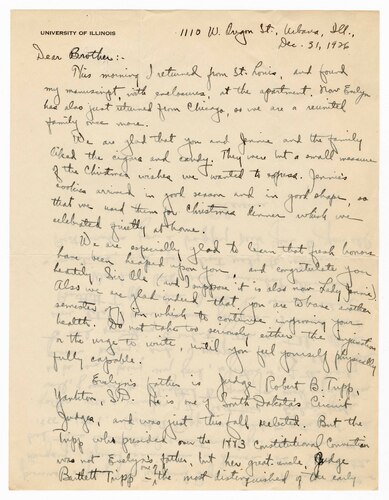 UNIVERSITY OF ILLINOIS
1110 W. Oregon St., Urbana, Ill.,
Dec. 31, 1926
Dear Brother:-
This morning I returned from St. Louis, and found
my manuscript, with enclosures, at the apartment. Now Evelyn
has also just returned from Chicago, so we are a reunited
family once more.
We are glad that you and Jennie and the family
liked the cigars and candy. They were but a small measure
of the Christmas wishes we wanted to express. Jennie's
cookies arrived in good season and in good shape, so
that we had them for Christmas dinner which we
celebrated quietly at home.
We are especially glad to learn that fresh honors
have been heaped upon you, and congratulate you
heartily, Sir (and I suppose it is also now Lady Jennie)
Also we are glad indeed that you are to have another
semester off in which to continue improving your
health. Do not take too seriously either the question
or the urge to write, until you feel yourself physically
fully capable.
Evelyn's father is Judge Robert B. Tripp,
Yankton, S.D. He is one of South Dakota's Circuit
Judges, and was just this fall reelected. But the
Tripp who presided over the 1883 Constitutional Convention
was not Evelyn's father, but her great-uncle, Judge
Bartlett Tripp - one of the most distinguished of the early